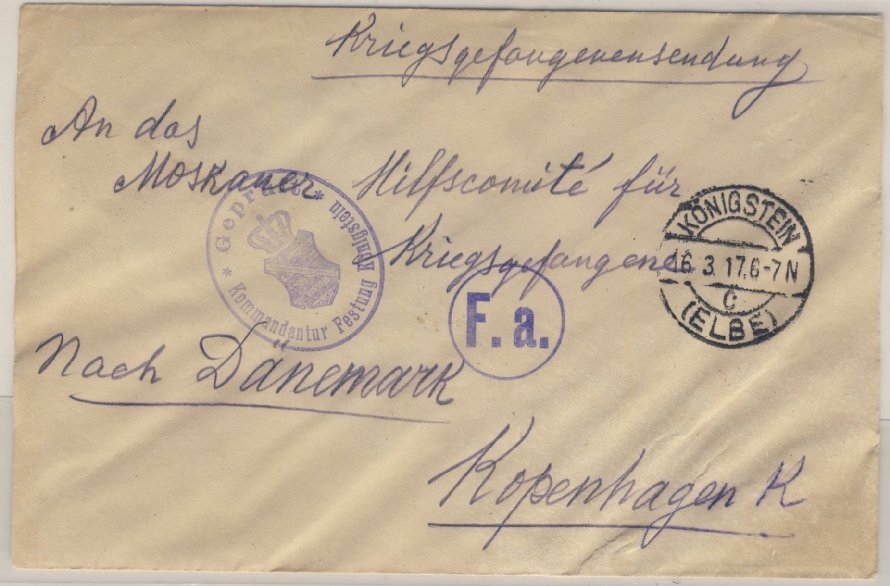 Kriegsgefangenensendung
An das
Moskauer Hilfscomité für
Kriegsgefangene
* Geprüft *
Kommandantur Festung Königstein
KÖNIGSTEIN
16.3.17.6-7N
c
(ELBE)
F.a.
Nach Dänemark
Kopenhagen K